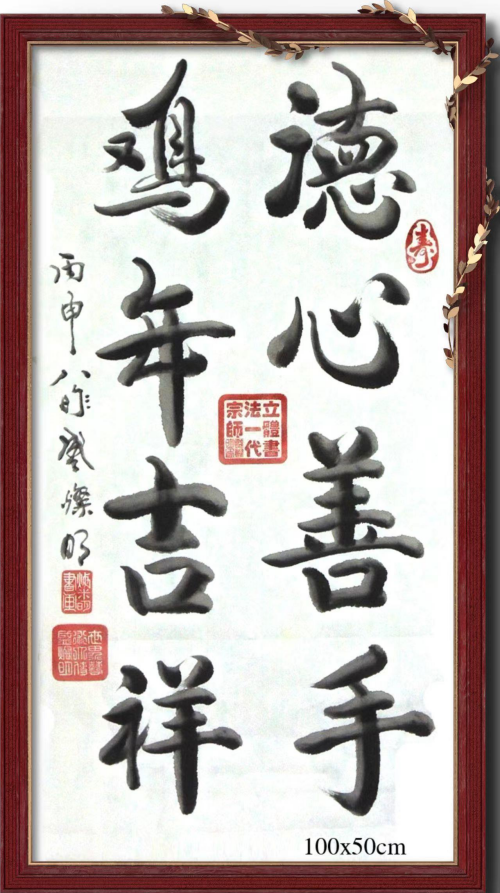 德心善手
寿
鸡年吉祥
立體書
法一代
宗師
丙申八
燦明
100x50cm